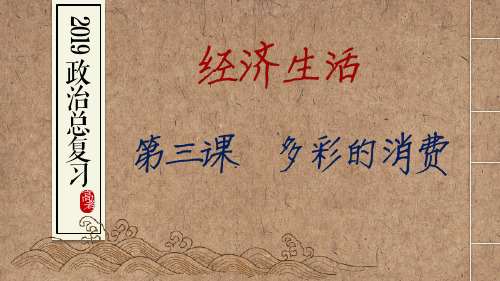 2019政治总复习
高考
经济生活
第三课 多彩的消费